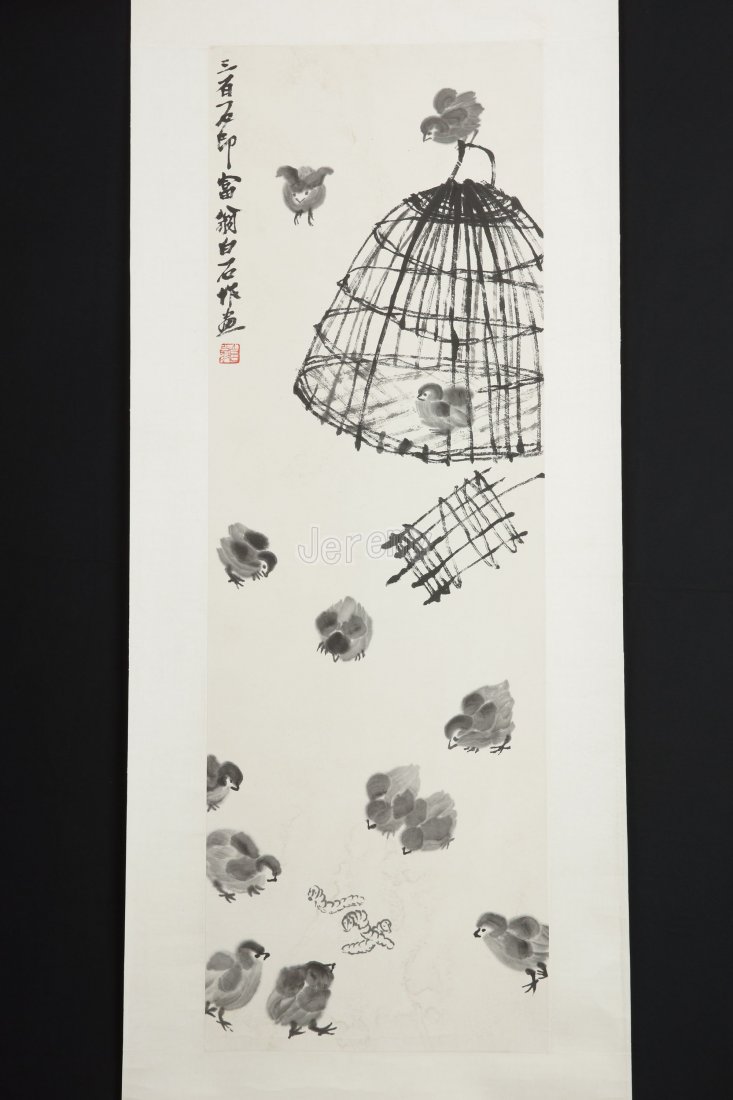 三百石印富翁白石作画
Jere